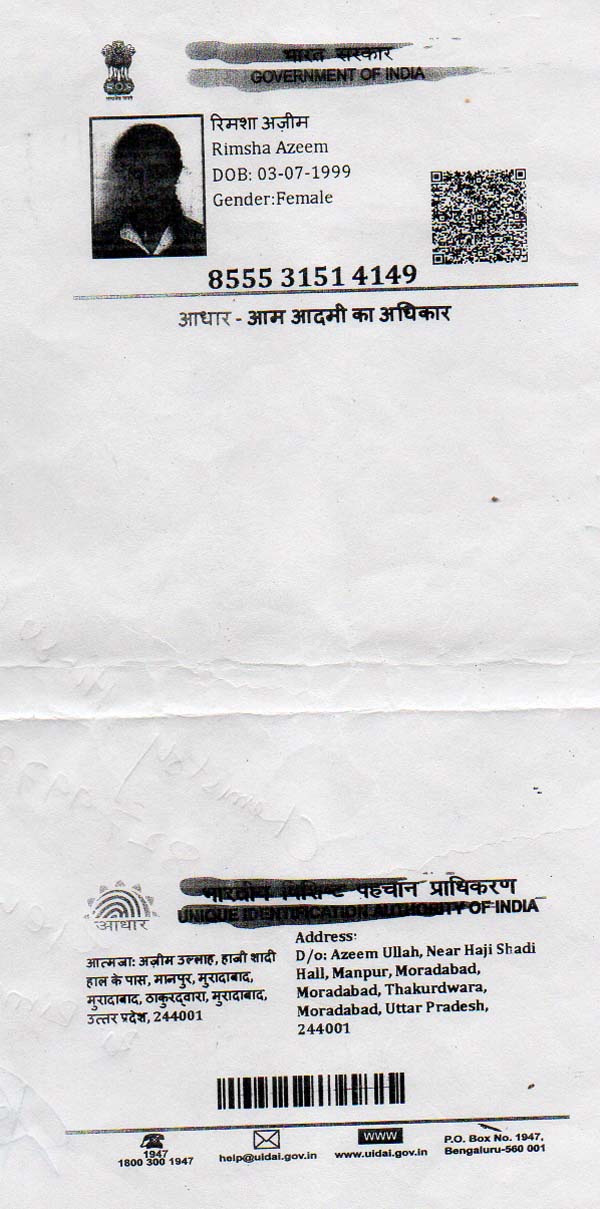 भारत सरकार
GOVERNMENT OF INDIA
रिमशा अज़ीम
Rimsha Azeem
DOB: 03-07-1999
Gender:Female
8555 3151 4149
आधार - आम आदमी का अधिकार
भारतीय विशिष्ट पहचान प्राधिकरण
UNIQUE IDENTIFICATION AUTHORITY OF INDIA
आधार
आत्मजा: अज़ीम उल्लाह, हाजी शादी
हाल के पास, मानपुर, मुरादाबाद,
मुरादाबाद, ठाकुरद्वारा, मुरादाबाद,
उत्तर प्रदेश, 244001
Address:
D/o: Azeem Ullah, Near Haji Shadi
Hall, Manpur, Moradabad,
Moradabad, Thakurdwara,
Moradabad, Uttar Pradesh,
244001
1947
1800 300 1947
help@uidai.gov.in
WWW
www.uidai.gov.in
P.O. Box No. 1947,
Bengaluru-560 001